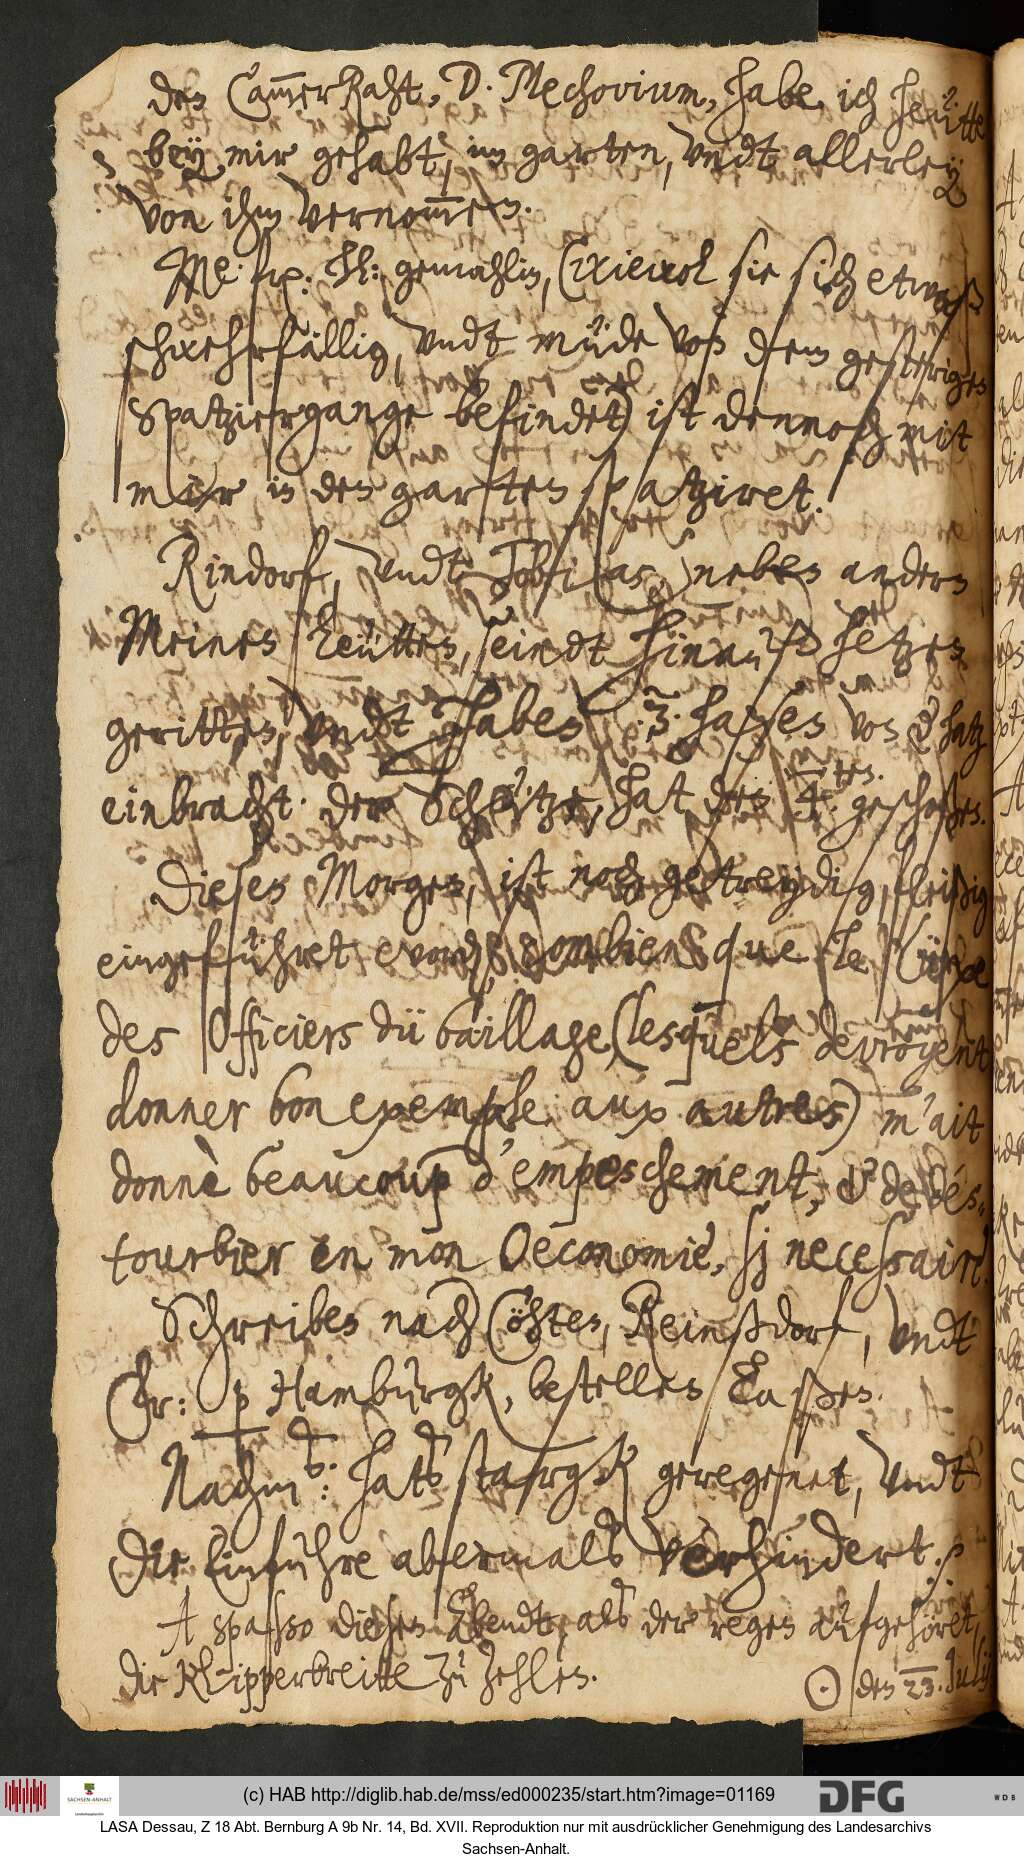 den CammerRaht, D. Mechovium, habe ich heütte
bey mir gehabt, im garten, vndt allerley
von ihm vernommen.
gemahlin, (wiewol sie sich etwaß
schwehrfällig, vndt müde von dem gesterigen
Spatziergange befindet) ist dennoch mit
mir in den garten spatziret.
Rindorf, vndt Tobias, neben andern
Meinen Leütten, seindt hinauß hetzen
geritten, vndt haben .3. hasen von d hatz
einbracht. der Schütze, hat den 4.ten geschoßen.
Diesen Morgen, ist noch getreydig, fleißig
eingeführet worden combien que le
des Officiers dü baillage, (lesquels devroyent
donner bon exemple aux autres) m'ait
donnè beaucoup d'empeschement, & de des-
tourbier en mon Oeconomie, sj necessaire.
Schreiben nach Cöhten, Reinßdorf, vndt
Hamburgk, bestellen laßen.
Nachmits: hats starck geregenet, vndt
die Einführe abermals verhindert.
A spasso diesen Abendt, als der regen aufgehöret,
die Klipperbreitte zu zehlen.
⊙ den 23. Julij
(c) HAB http://diglib.hab.de/mss/ed000235/start.htm?image=01169
DFG
WDB
SACHSEN-ANHALT
LASA Dessau, Z 18 Abt. Bernburg A 9b Nr. 14, Bd. XVII. Reproduktion nur mit ausdrücklicher Genehmigung des Landesarchivs
Sachsen-Anhalt.